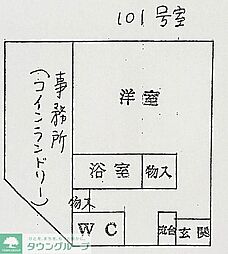 101号室
事務所
(コインランドリー)
洋室
浴室
物入
物入
WC
玄関
タウングループ